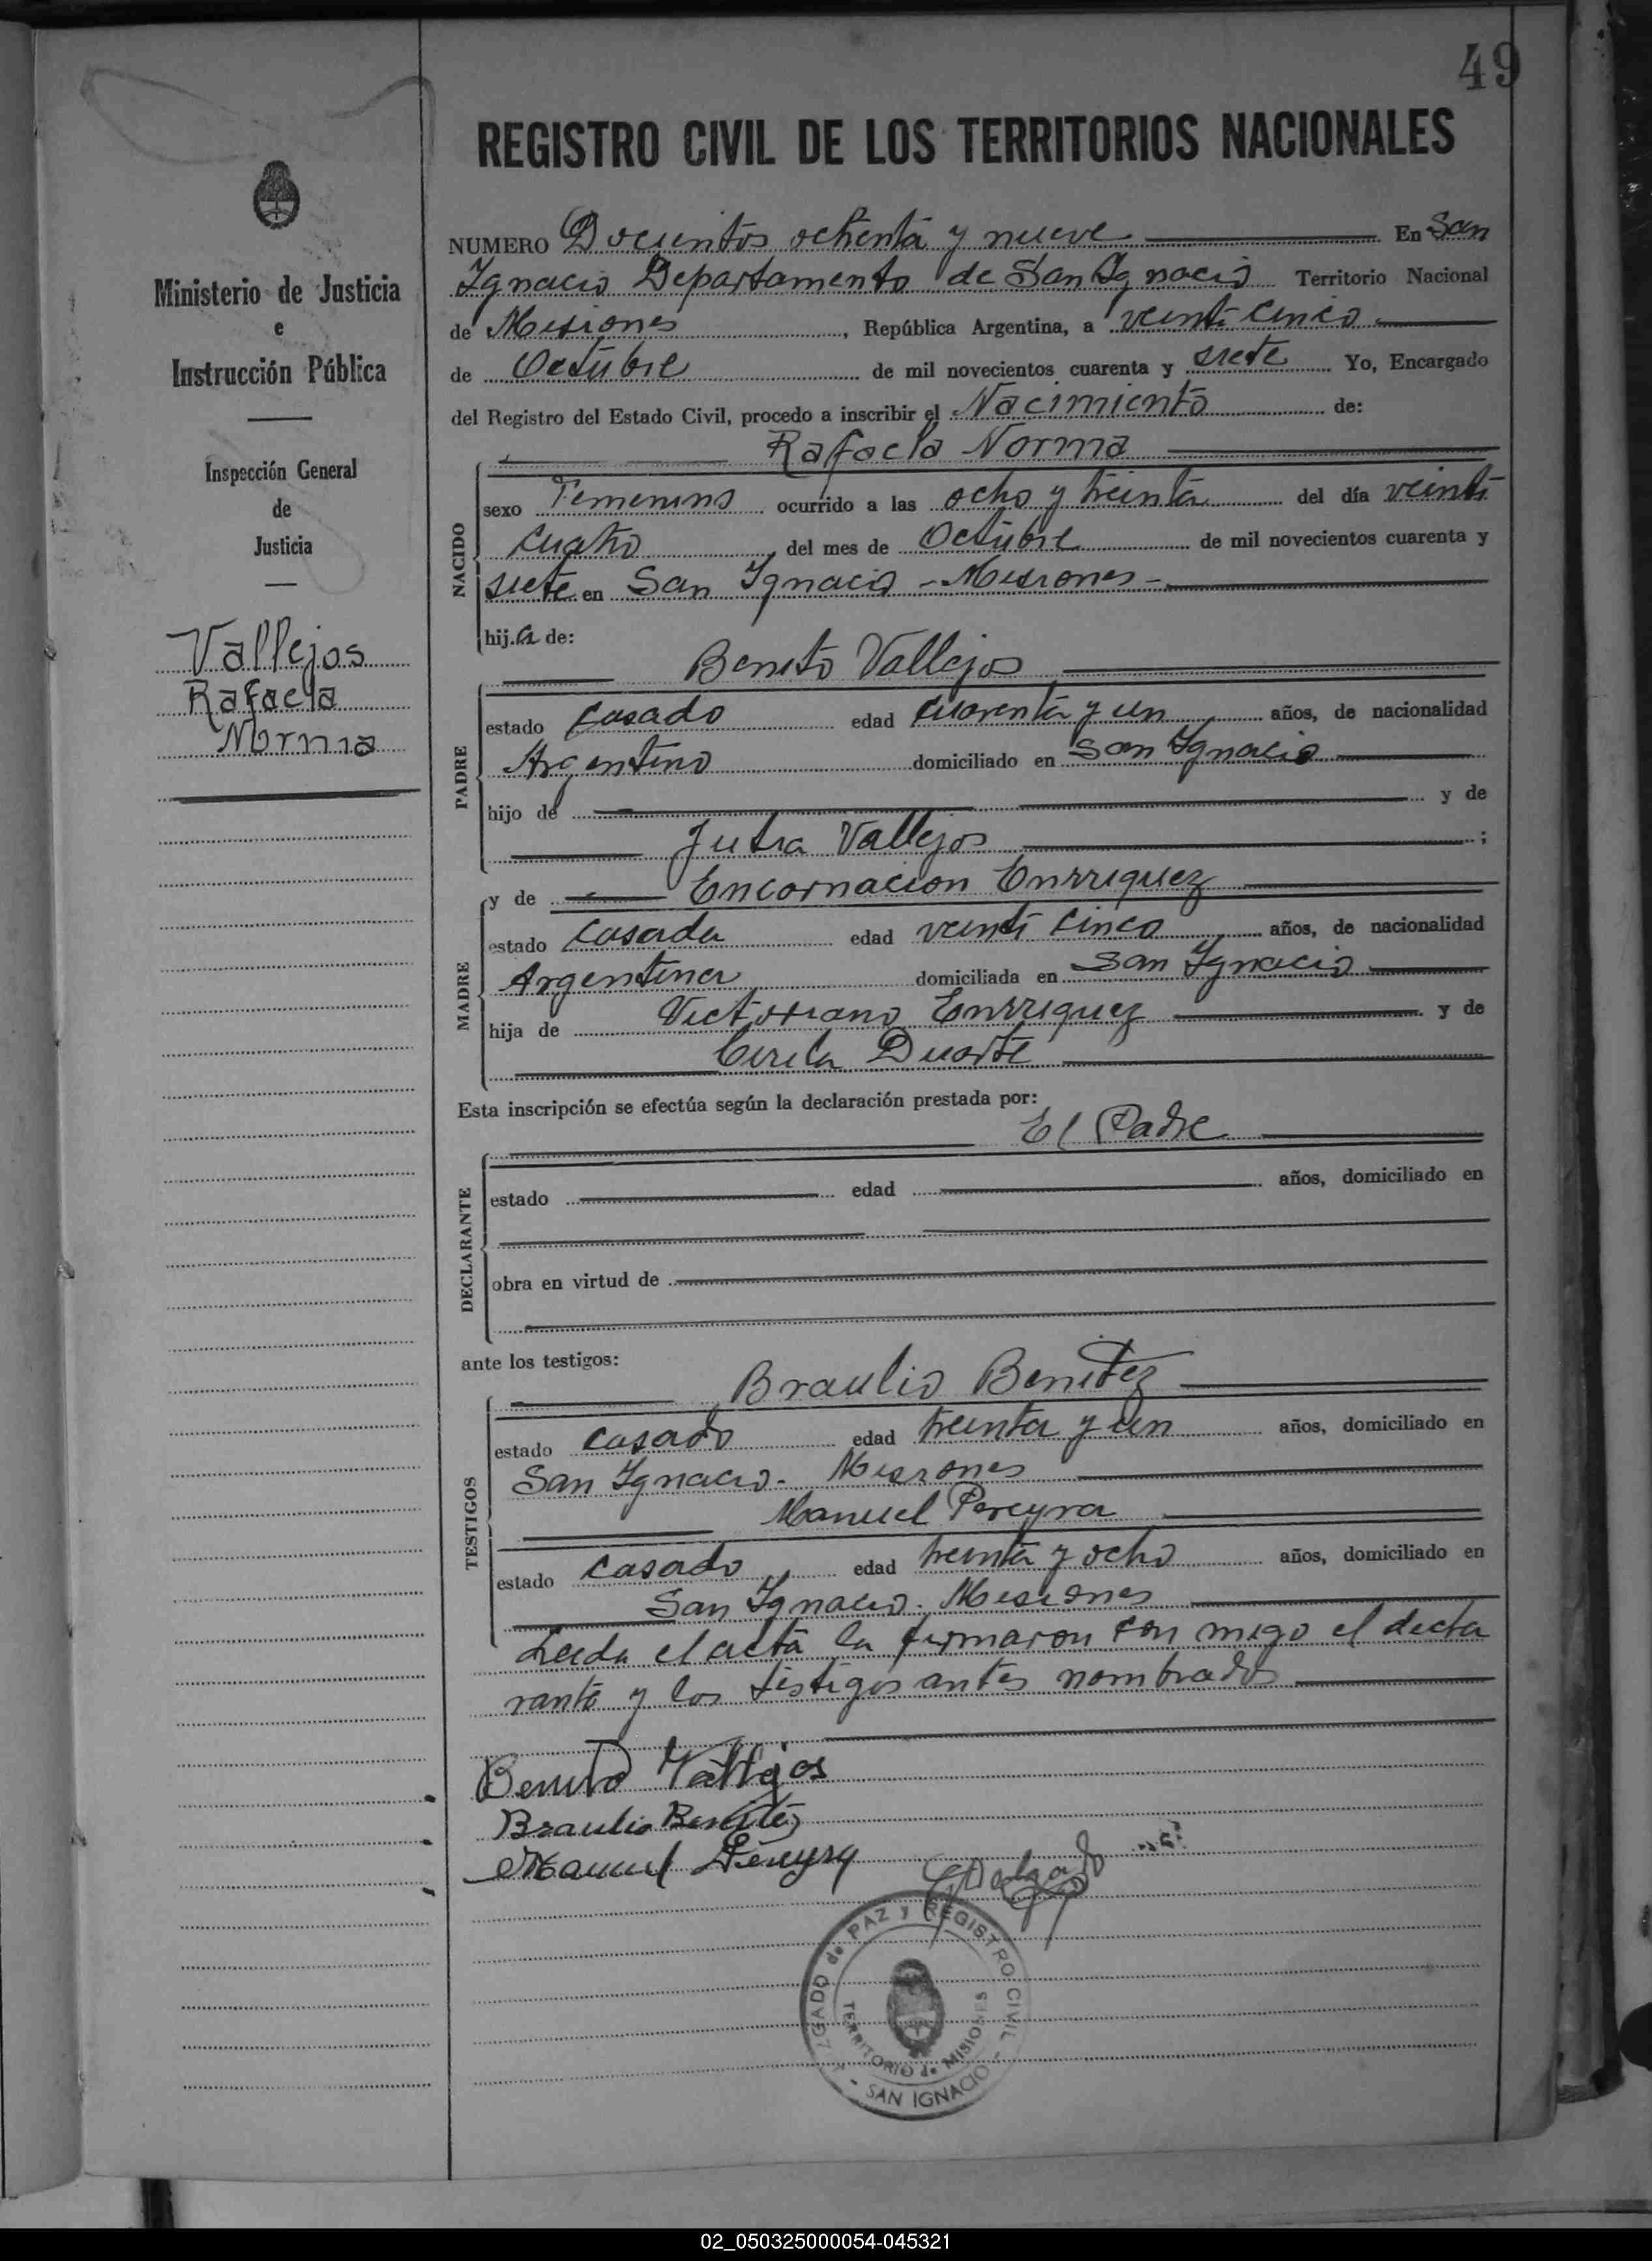 49
REGISTRO CIVIL DE LOS TERRITORIOS NACIONALES
Ministerio de Justicia
e
Instrucción Pública
Inspección General
de
Justicia
Vallejos
Rafaela
Norma
NUMERO Docientos ochenta y nueve En San
Ignacio Departamento de San Ignacio Territorio Nacional
de Misiones, República Argentina, a veinti cinco
de Octubre de mil novecientos cuarenta y siete Yo, Encargado
del Registro del Estado Civil, procedo a inscribir el Nacimiento de:
Rafaela Norma
NACIDO
sexo Femenino ocurrido a las ocho y treinta del día veinti
cuatro del mes de Octubre de mil novecientos cuarenta y
siete en San Ignacio - Misiones -
hij.a de:
Benito Vallejos
PADRE
estado casado edad cuarenta y un años, de nacionalidad
Argentino domiciliado en San Ignacio
hijo de y de
Vallejos ;
y de Encarnacion Enrriquez
MADRE
estado casada edad veinti cinco años, de nacionalidad
Argentina domiciliada en San Ignacio
hija de Victoriano Enrriquez y de
Cirila Duarte
Esta inscripción se efectúa según la declaración prestada por:
El Padre
DECLARANTE
estado edad años, domiciliado en
obra en virtud de
ante los testigos:
Braulio Benitez
TESTIGOS
estado casado edad treinta y un años, domiciliado en
San Ignacio - Misiones
Manuel Pereyra
estado casado edad treinta y ocho años, domiciliado en
San Ignacio - Misiones
Leida el acta la firmaron con migo el decla
rante y los testigos antes nombrados
Benito Vallejos
Braulio Benitez
Manuel Pereyra
ZGADO de PAZ y REGISTRO CIVIL
TERRITORIO de MISIONES
- SAN IGNACIO -
02_050325000054-045321